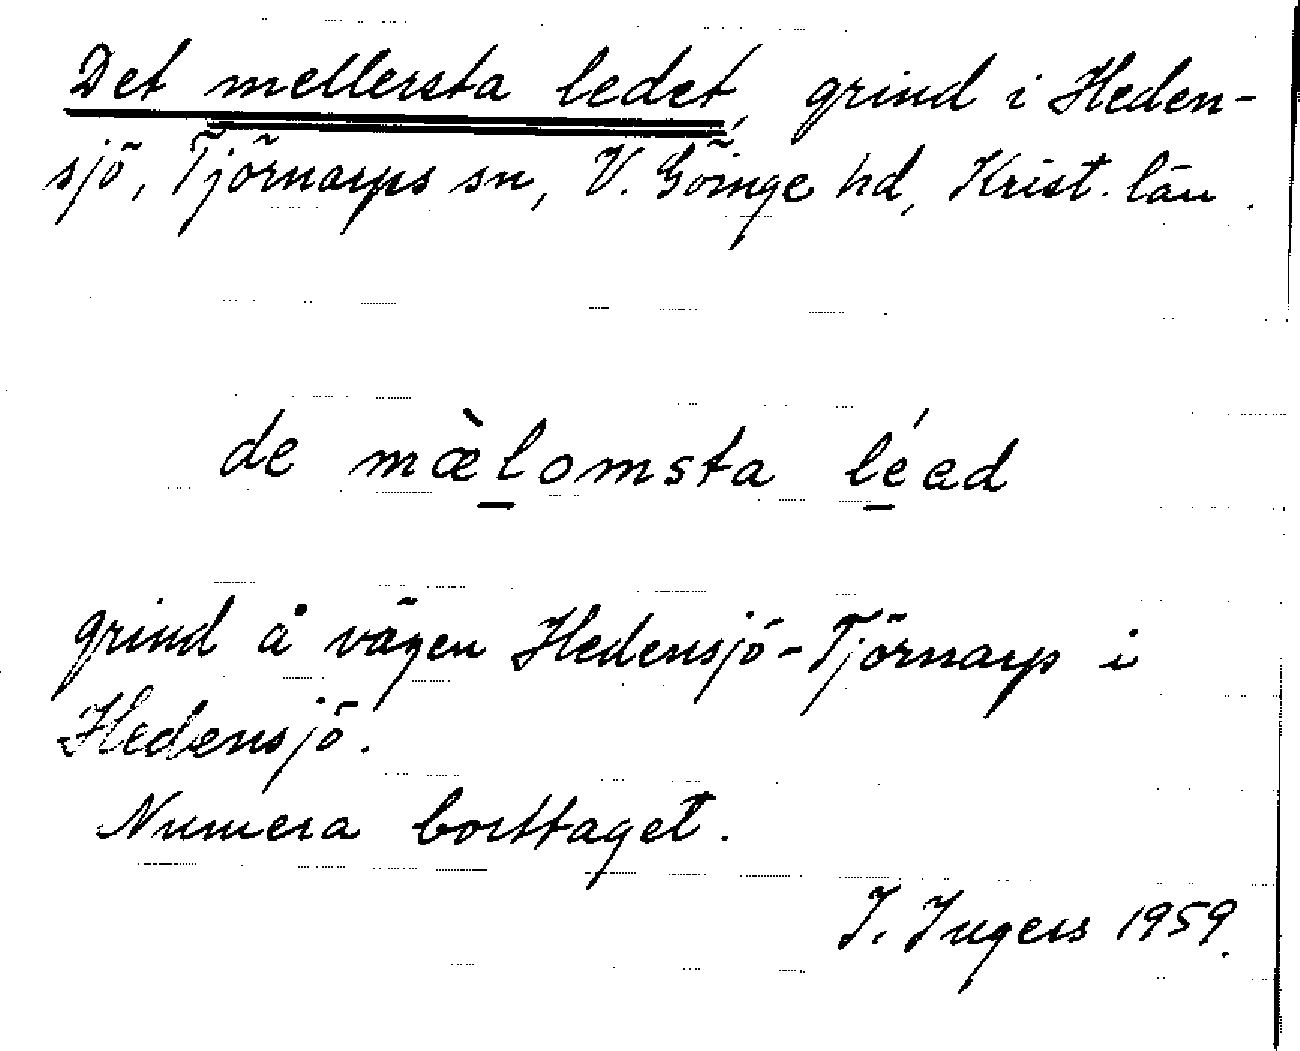 Det mellersta ledet, grind i Heden-
sjö, Tjörnarps sn, V. Göinge hd, Krist. län.
de mæ̀l̲omsta lé̲ad
grind å vägen Hedensjö-Tjörnarp i
Hedensjö.
Numera borttaget.
I. Ingers 1959.